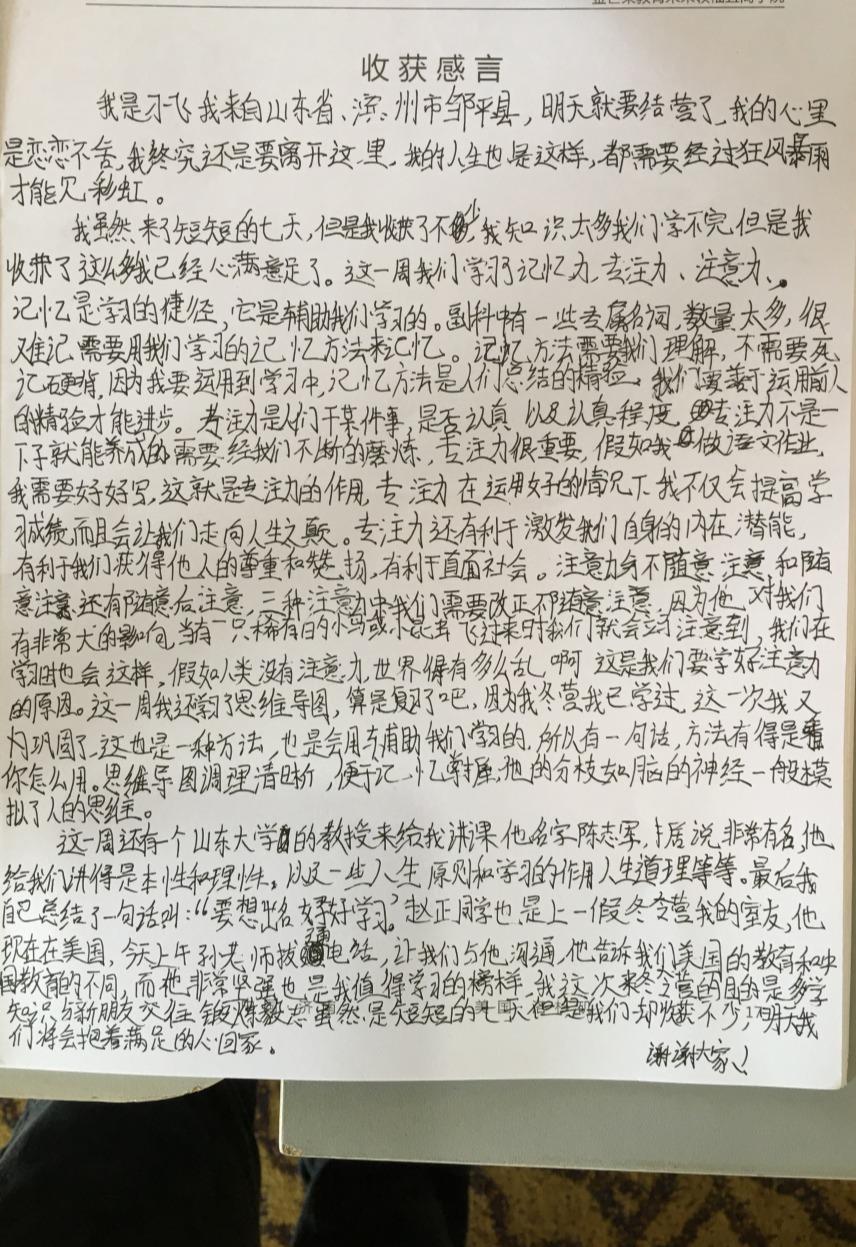 收获感言
我是刁飞我来自山东省、滨州市邹平县，明天就要结营了，我的心里
是恋恋不舍，我终究还是要离开这里，我的人生也是这样，都需要经过狂风暴雨
才能见彩虹。
我虽然来了短短的七天，但是我收获了不少，我知识太多我们学不完，但是我
收获了这么多我已经心满意足了。这一周我们学习了记忆力、专注力、注意力、。
记忆是学习的捷径，它是辅助我们学习的。副科中有一些专属名词，数量太多，很
难记，需要用我们学习的记忆方法来记忆。记忆方法需要我们理解，不需要死
记硬背，因为我要运用到学习中，记忆方法是人们总结的精验，我们要善于运用前人
的精验才能进步。专注力是人们干某件事，是否认真以及认真程度，专注力不是一
下子就能养成的需要经我们不断的磨炼，专注力很重要，假如我做语文作业，
我需要好好写，这就是专注力的作用，专注力在运用好的情况下我不仅会提高学
习成绩，而且会让我们走向人生之巅。专注力还有利于激发我们自身的内在潜能，
有利于我们获得他人的尊重和赞扬，有利于直面社会。注意力分不随意注意和随有
意注意还有随意后注意，三种注意力中我们需要改正不随意注意，因为他对我们
有非常大的影向，当有一只稀有的小鸟或小昆虫飞过来时我们就会立刻注意到，我们在
学习时也会这样，假如人类没有注意力，世界得有多么乱啊，这是我们要学好注意力
的原因。这一周我还学习了思维导图，算是复习了吧，因为我冬营我已学过，这一次我又
巩固了，这也是一种方法，也是会用来辅助我们学习的，所以有一句话，方法有得是看
你怎么用。思维导图调理清晰，便于记忆掌握，他的分枝如脑的神经一般模
拟了人的思维。
这一周还有一个山东大学的教授来给我讲课他名字陈志军，据说非常有名，他
给我们讲得是本性和理性，以及一些人生原则和学习的作用人生道理等等。最后我
自己总结了一句话叫：“要想出名好好学习”赵正同学也是上一假冬令营我的室友，他
现在在美国，今天上午孙老师拨通电话，让我们与他沟通，他告诉我们美国的教育和中
国教育的不同，而他非常坚强也是我值得学习的榜样，我这次来冬令营的目的是多学
知识，与新朋友交往，锻炼毅志虽然是短短的七天但是我们却收获不少，明天我
们将会抱着满足的心回家。
谢谢大家！